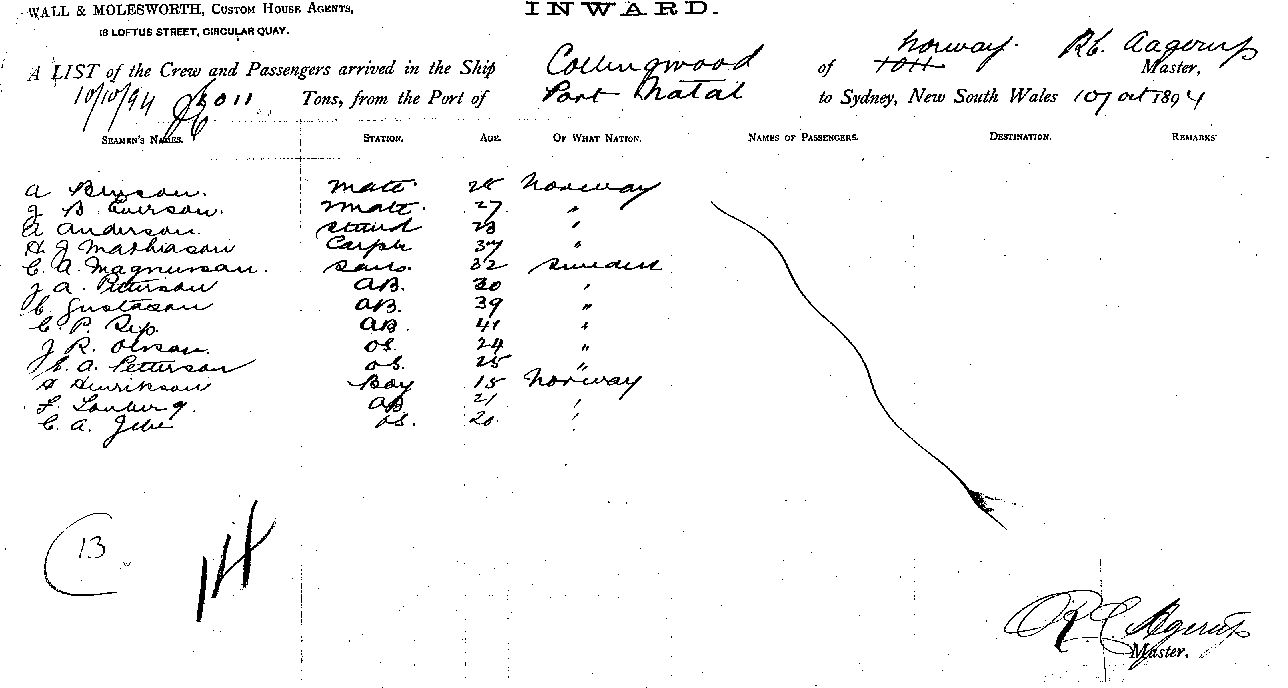 WALL & MOLESWORTH, CUSTOM HOUSE AGENTS,
18 LOFTUS STREET, CIRCULAR QUAY.
INWARD.
A LIST of the Crew and Passengers arrived in the Ship Collingwood of Norway. Aagerup Master,
10/10/94 1011 Tons, from the Port of Port Natal to Sydney, New South Wales 10 Oct 1894
SEAMEN'S NAMES. STATION. AGE. OF WHAT NATION. NAMES OF PASSENGERS. DESTINATION. REMARKS
A Mate. 28 Norway
J B Everson. Mate. 27 "
A Anderson. 23 "
H. J Mathiason 37 "
C. A. Magnuson. 32 Sweden
J A. Petterson AB. "
C. Gustason AB. 39 "
C. P. AB 41 "
J R. Olsson. OS. 24 "
A. Petterson OS. 25 "
H Henrikson Boy 15 Norway
F. AB 21 "
C. A. OS. 20 "
13
14
R C Agerup
Master.